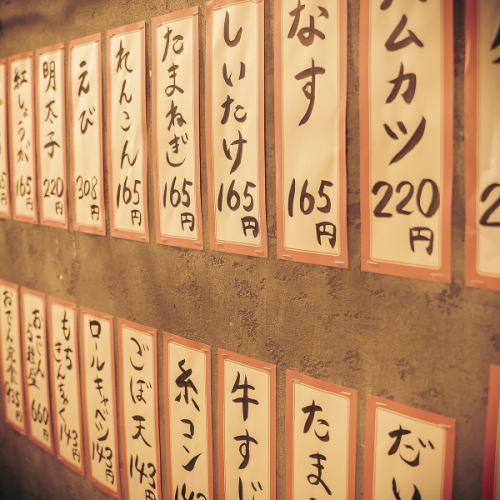 ハムカツ 220円
なす 165円
しいたけ 165円
たまねぎ 165円
れんこん 165円
えび 308円
明太子 220円
紅しょうが 165円
だい
たま
牛すじ
糸コン 143
ごぼ天 143円
ロールキャベジ 143円
もちきんちゃく 143円
660円
おでん定食 935円